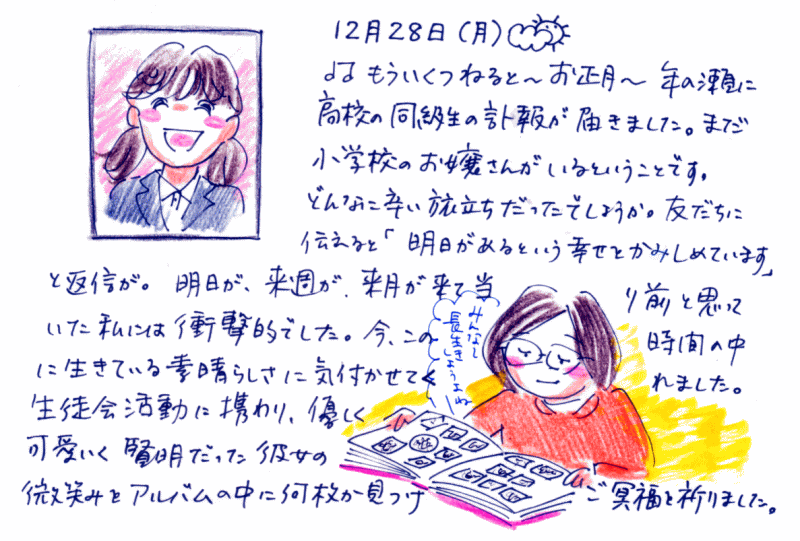 12月28日(月)
♪♫ もういくつねると〜 お正月〜 年の瀬に
高校の同級生の訃報が届きました。まだ
小学校のお嬢さんがいるということです。
どんなに辛い旅立ちだったでしょうか。友だちに
伝えると「明日があるという幸せをかみしめています」
と返信が。 明日が、来週が、来月が来て当り前と思って
いた私には衝撃的でした。今、この時間の中
に生きている素晴らしさに気付かせてくれました。
生徒会活動に携わり、優しく
可愛いく賢明だった彼女の
微笑みをアルバムの中に何枚か見つけご冥福を祈りました。
みんなで
長生き
しようよね